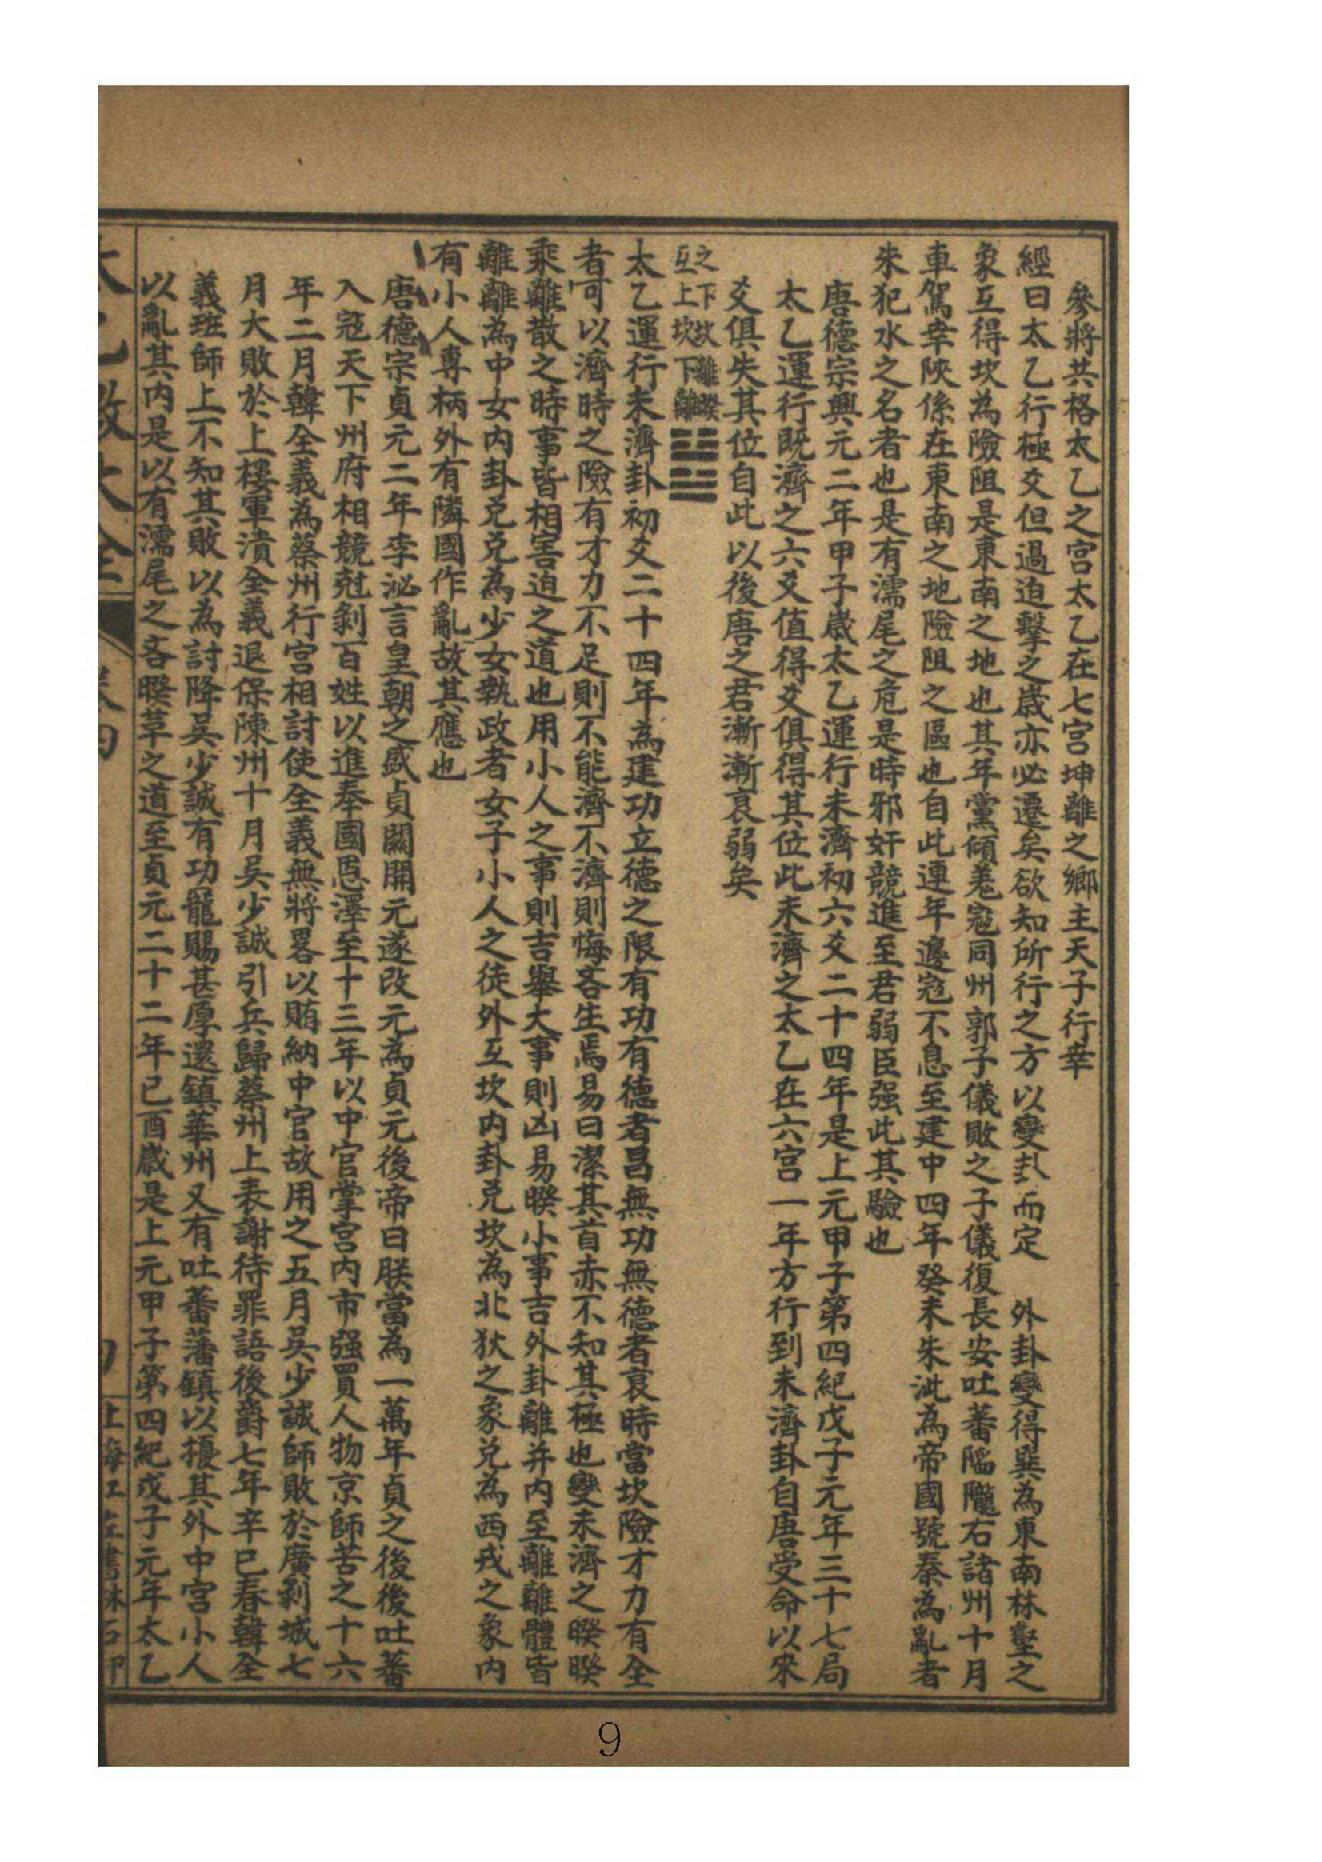 參將共格太乙之宮太乙在七宮坤離之鄉主天子行幸
經曰太乙行極爻但過迫擊之歲亦必遷矣欲知所行之方以變卦而定　外卦變得巽為東南林壑之
象互得坎為險阻是東南之地也其年黨傾羗寇同州郭子儀敗之子儀復長安吐蕃陷隴右諸州十月
車駕幸陜係在東南之地險阻之區也自此連年邊寇不息至建中四年癸未朱泚為帝國號秦為亂者
朱犯水之名者也是有濡尾之危是時邪奸競進至君弱臣强此其驗也
唐德宗興元二年甲子歲太乙運行未濟初六爻二十四年是上元甲子第四紀戊子元年三十七局
太乙運行既濟之六爻值得爻俱得其位此未濟之太乙在六宮一年方行到未濟卦自唐受命以來
爻俱失其位自此以後唐之君漸漸衰弱矣
之下坎離暌
互上坎下離
太乙運行未濟卦初爻二十四年為建功立德之限有功有德者昌無功無德者衰時當坎險才力有全
者可以濟時之險有才力不足則不能濟不濟則悔吝生焉易曰潔其首赤不知其極也變未濟之暌暌
乘離散之時事皆相害迫之道也用小人之事則吉舉大事則凶易暌小事吉外卦離并內至離離體皆
離離為中女內卦兑兑為少女執政者女子小人之徒外互坎內卦兑坎為北狄之象兑為西戎之象內
有小人專柄外有隣國作亂故其應也
唐德宗貞元二年李泌言皇朝之盛貞觀開元遂改元為貞元後帝曰朕當為一萬年貞之後後吐蕃
入寇天下州府相競尅剝百姓以進奉國恩澤至十三年以中官掌宮內市强買人物京師苦之十六
年二月韓全義為蔡州行宮相討使全義無將畧以賄納中官故用之五月吳少誠師敗於廣剩城七
月大敗於上樓軍潰全義退保陳州十月吳少誠引兵歸蔡州上表謝待罪語後爵七年辛巳春韓全
義班師上不知其敗以為討降吳少誠有功寵賜甚厚還鎮華州又有吐蕃藩鎮以擾其外中宮小人
以亂其內是以有濡尾之吝暌革之道至貞元二十二年已酉歲是上元甲子第四紀戊子元年太乙
太乙數大全
卷四
上海江左書林石印
9